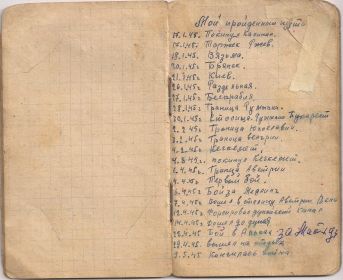 Мой пройденный путь
15.1.45. Покинул Калинин.
17.1.45г. Торжок Ржев.
18.1.45г. Вязьма.
20.1.45г. Брянск.
21.1.45г. Киев.
26.1.45г. Раздельная.
27.1.45г. Бессарабия.
28.1.45г. Граница Румынии.
30.1.45г. Столица Румынии Бухарест
2.2.45г. Граница Югославии.
3.2.45г. Граница Венгрии.
4.2.45г. Кечкемет.
покинул Кечкемет.
1.4.45г. Граница Австрии
4.4.45г. Первый бой.
6.4.45г. Бой за Медлинг
7.4.45г. Дошел в столицу Австрии Вена
12.4.45г. Форсировал дунайский канал
14.4.45г. Дошел до дуная
22.4.45 Бой в за
29.4.45. вышел на отдых
9.5.45 Кончилась война